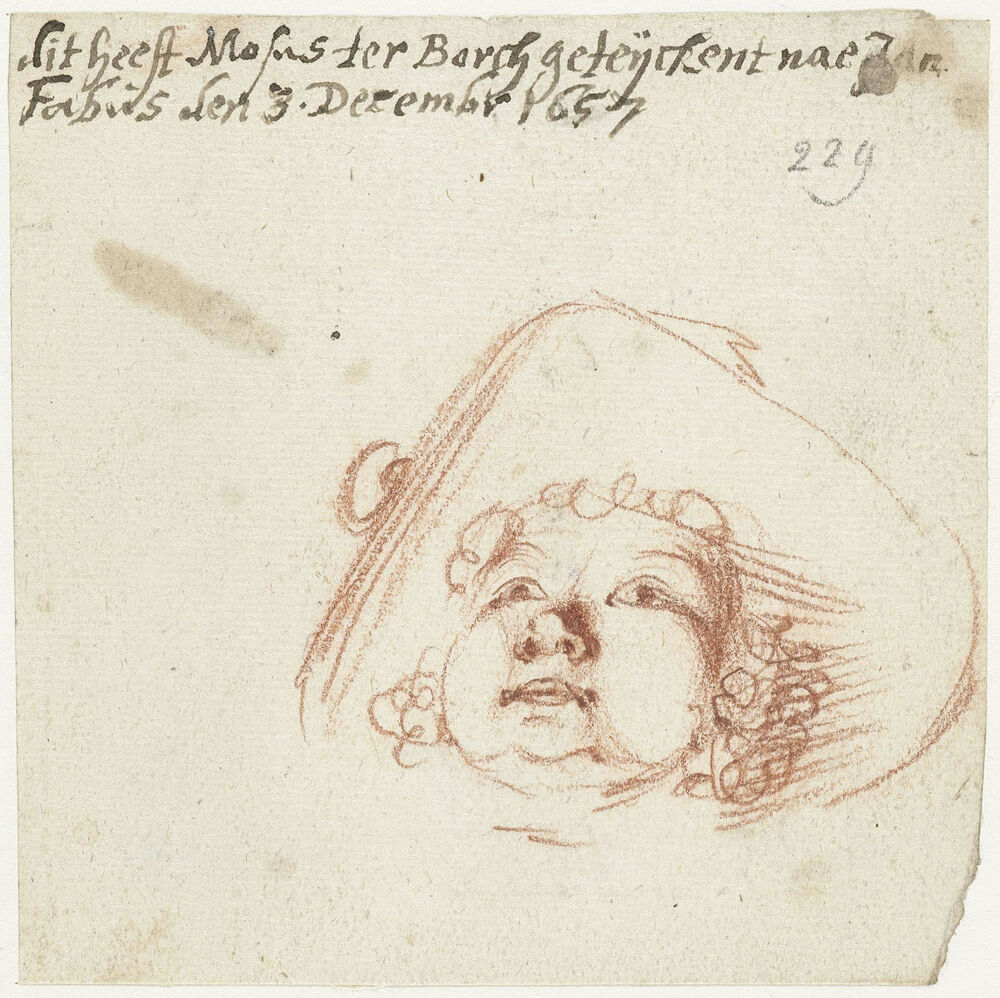 dit heeft Moses ter Borch geteÿckent nae Jan
Fabus den 3. Decembr 1657
229